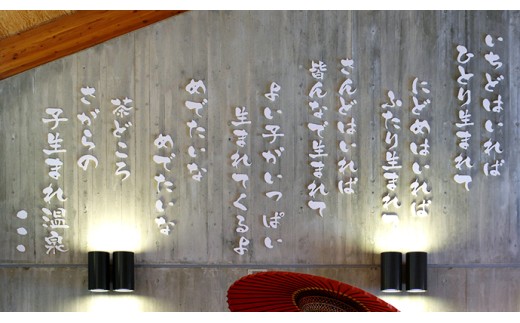 いちどはいれば
ひとり生まれて
にどめはいれば
ふたり生まれて
さんどはいれば
皆んなで生まれて
よい子がいっぱい
生まれてくるよ
めでたいな
めでたいな
茶どころ
さがらの
子生まれ温泉
・・・